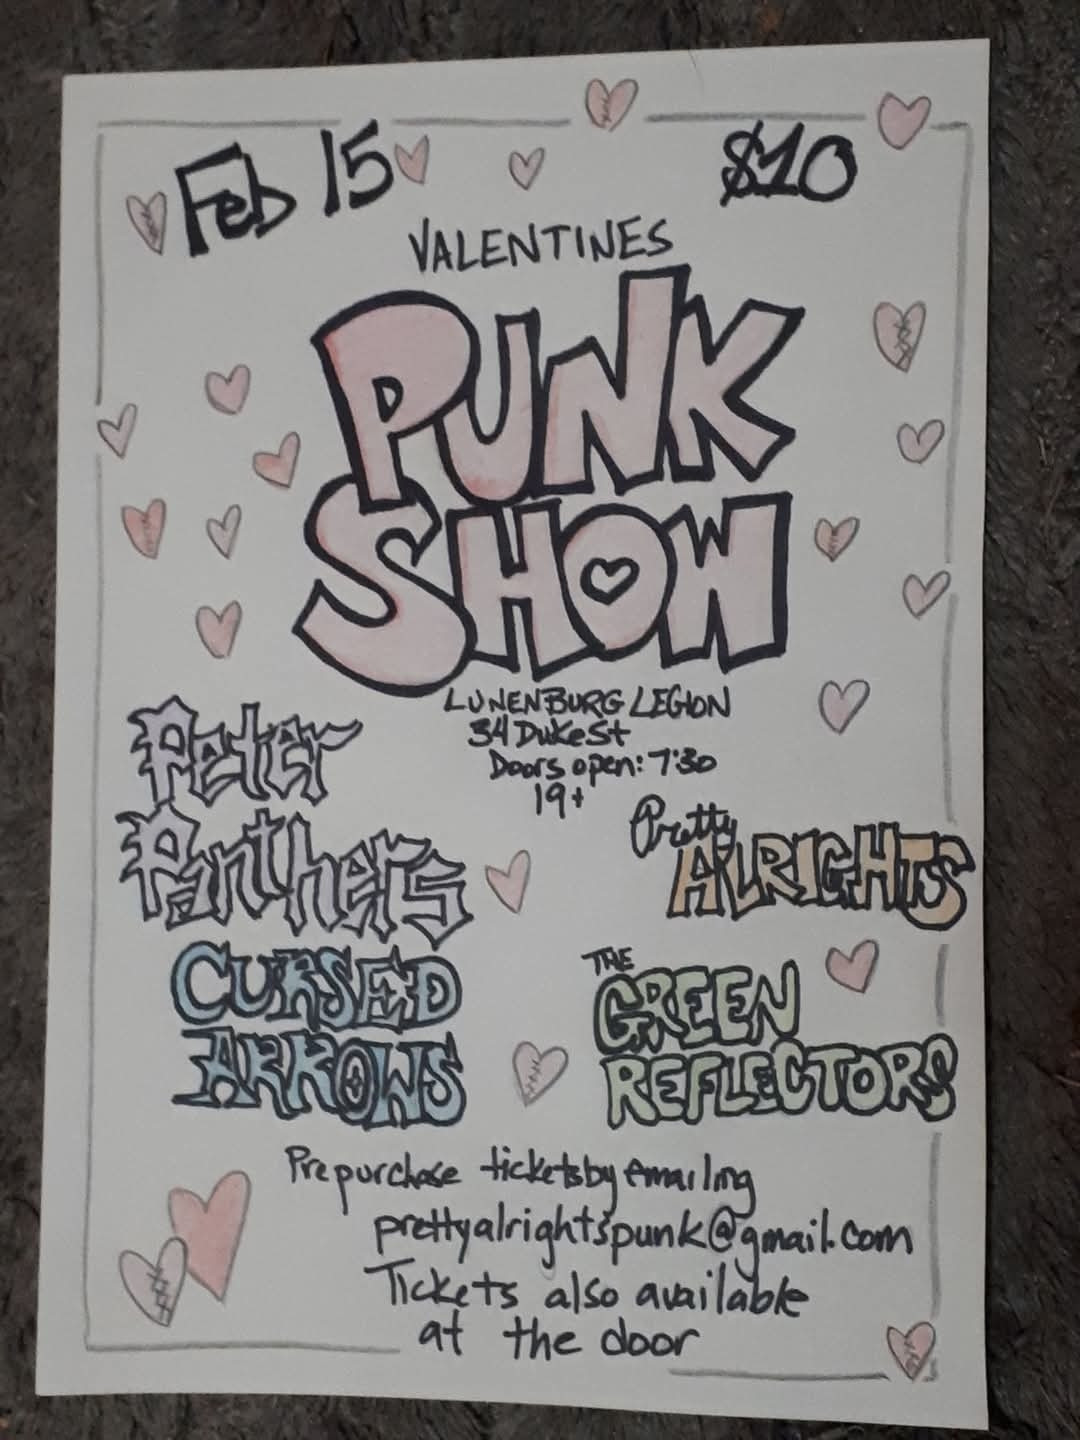 Feb 15
$10
VALENTINES
PUNK
SHOW
LUNENBURG LEGION
34 Duke St
Doors open: 7:30
19+
Peter
Panthers
Pretty
ALRIGHTS
CURSED
ARROWS
THE
GREEN
REFLECTORS
Prepurchase tickets by emailing
prettyalrightspunk@gmail.com
Tickets also available
at the door